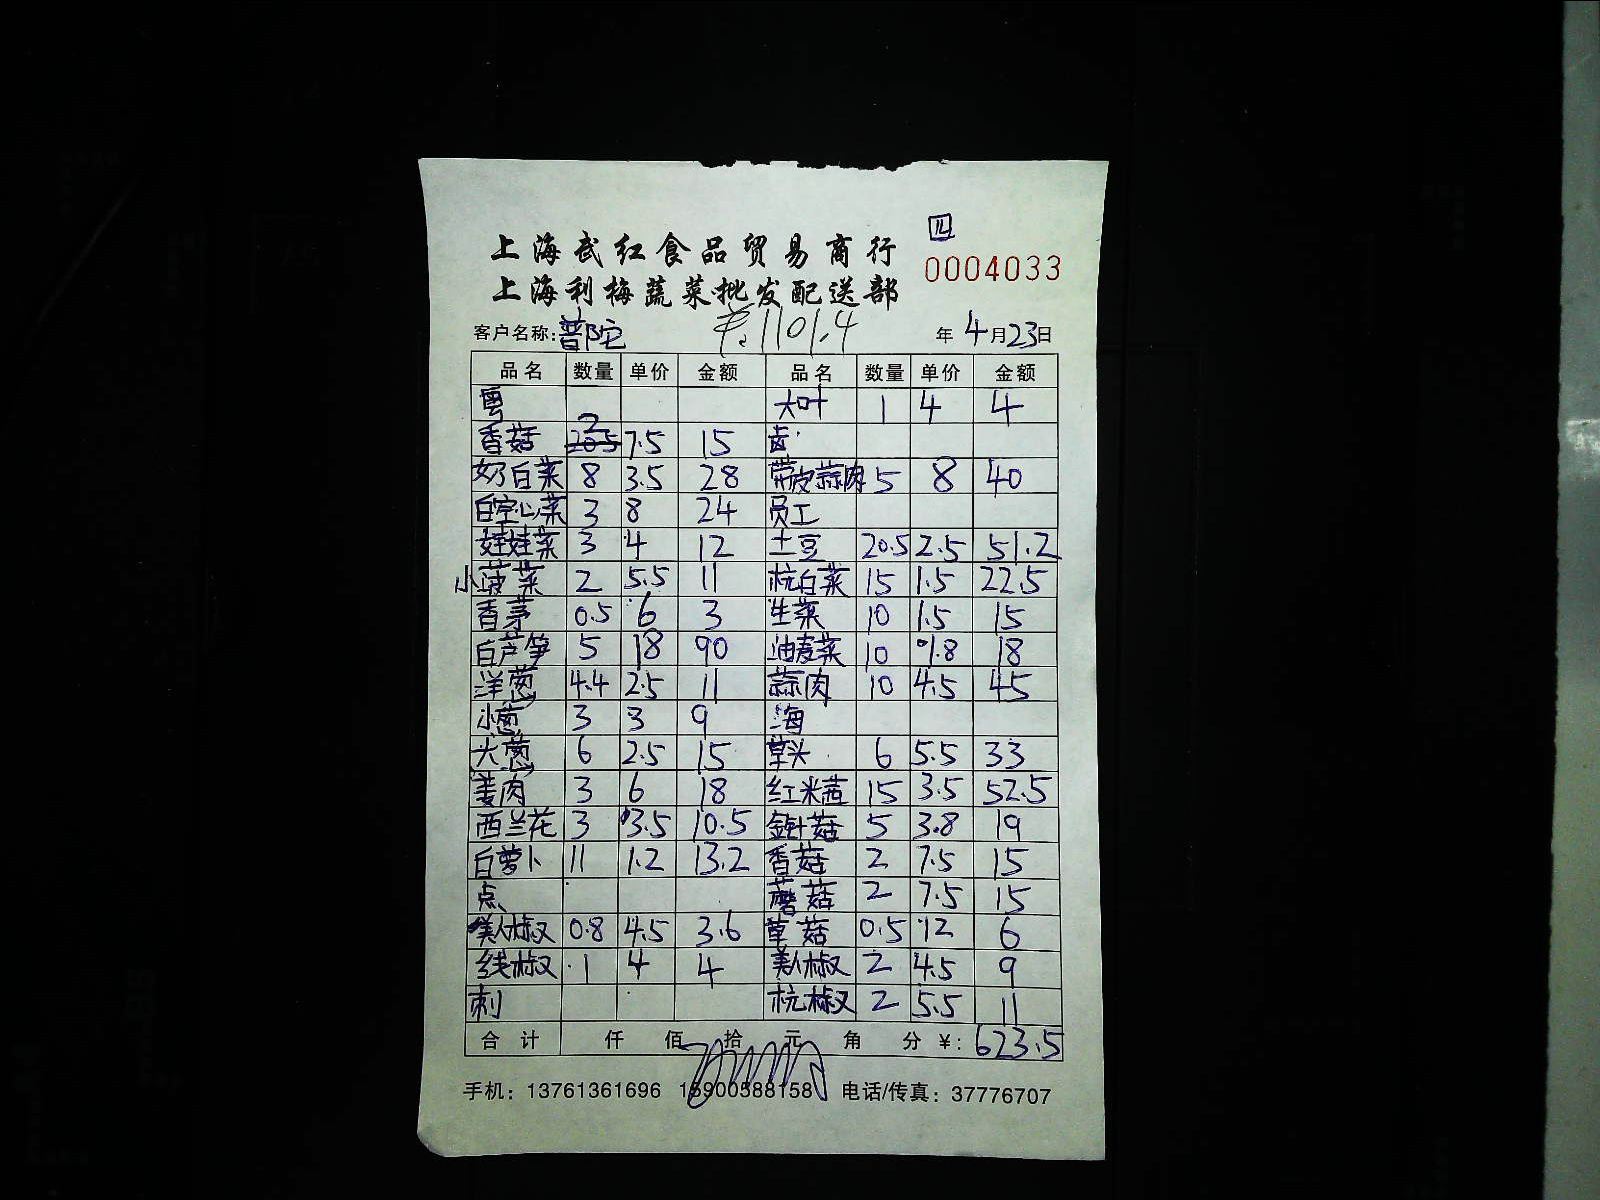 四
上海武红食品贸易商行
0004033
上海利梅蔬菜批发配送部
客户名称:普陀 1101.4 年 4月23日
品名 数量 单价 金额 品名 数量 单价 金额
粤 大叶 1 4 4
香菇 2 7.5 15 卤
奶白菜 8 3.5 28 带皮蒜肉 5 8 40
白空心菜 3 8 24 员工
娃娃菜 3 4 12 土豆 20.5 2.5 51.2
小菠菜 2 5.5 11 杭白菜 15 1.5 22.5
香茅 0.5 6 3 生菜 10 1.5 15
白芦笋 5 18 90 油麦菜 10 1.8 18
洋葱 4.4 2.5 11 蒜肉 10 4.5 45
小葱 3 3 9 海
大葱 6 2.5 15 草头 6 5.5 33
姜肉 3 6 18 红米茜 15 3.5 52.5
西兰花 3 3.5 10.5 金针菇 5 3.8 19
白萝卜 11 1.2 13.2 香菇 2 7.5 15
点 蘑菇 2 7.5 15
美人椒 0.8 4.5 3.6 草菇 0.5 12 6
线椒 1 4 4 美人椒 2 4.5 9
刺 杭椒 2 5.5 11
合计 仟 佰 拾 元 角 分 ¥: 623.5
手机: 13761361696 15900588158 电话/传真: 37776707